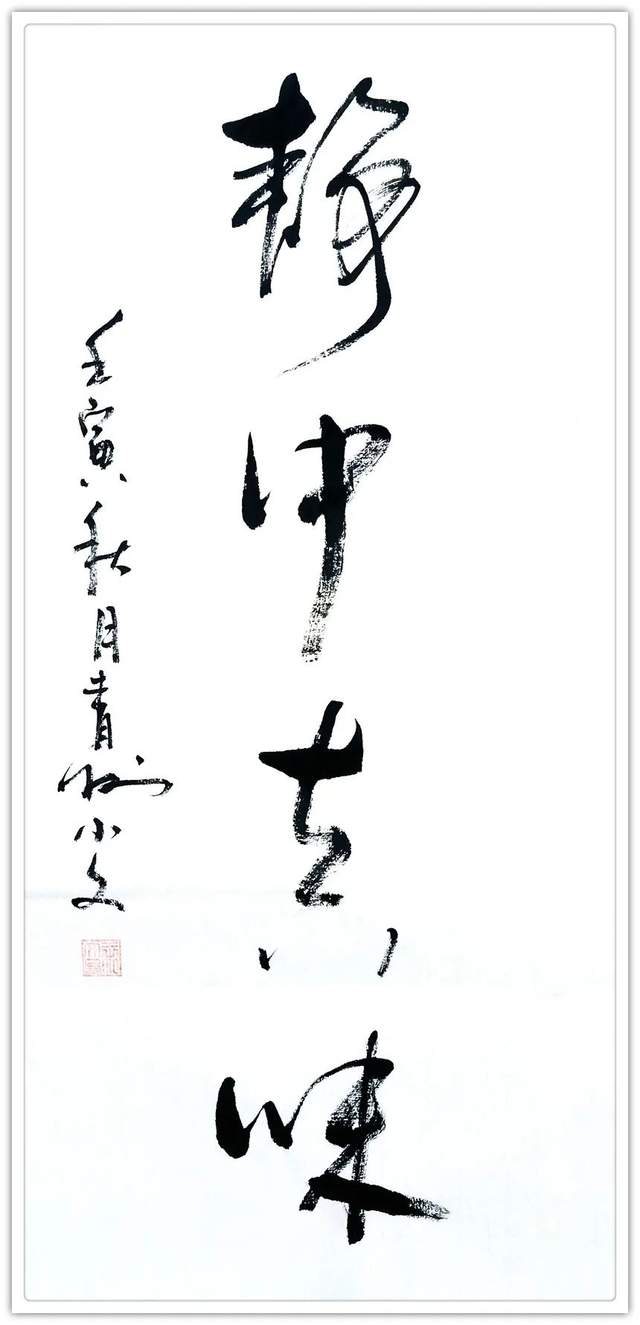 静中真味
壬寅秋月青州小文